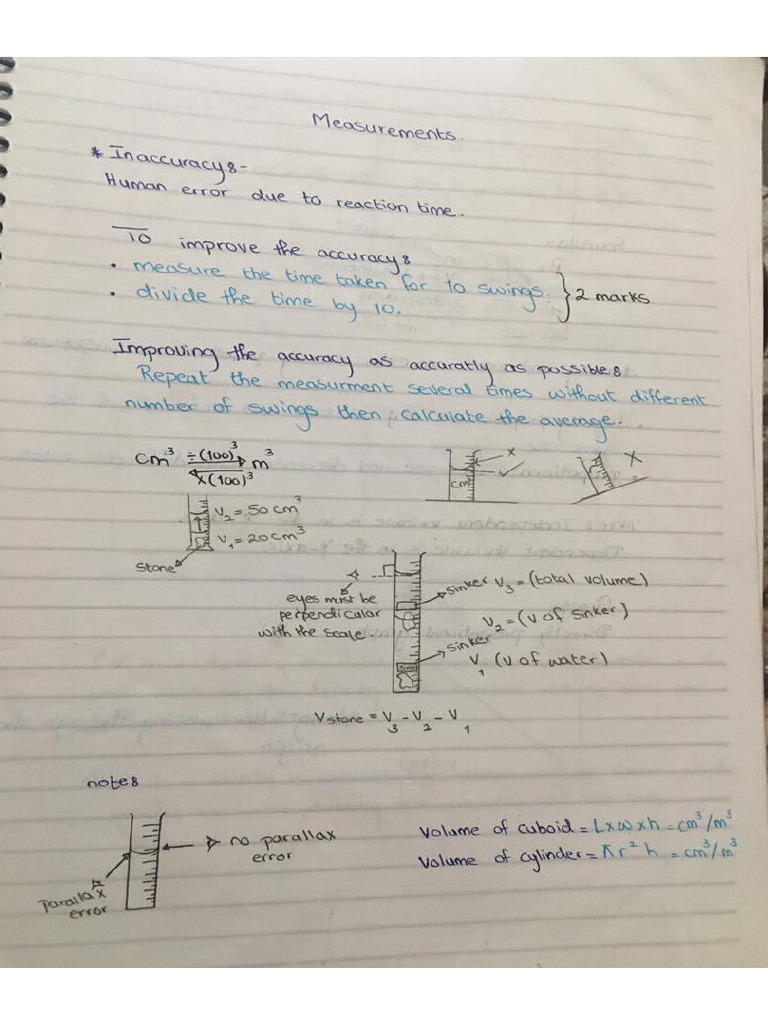 Measurements.
* Inaccuracy:-
Human error due to reaction time.
To improve the accuracy:
• measure the time taken for 10 swings.
• divide the time by 10.
} 2 marks
Improving the accuracy as accuratly as possible:
Repeat the measurment several times without different
number of swings then calculate the average.
cm³ ÷(100)³ m³
x(100)³
x
✓
cm
X
V₂ = 50 cm³
V₁ = 20 cm³
Stone
eyes must be
perpendicular
with the scale.
sinker V₃ = (total volume)
V₂ = (v of sinker)
sinker
V₁ (v of water)
V stone = V₃ - V₂ - V₁
note:
no parallax
error
x
parallax
error
Volume of cuboid = L x w x h = cm³/m³
Volume of cylinder = πr²h = cm³/m³